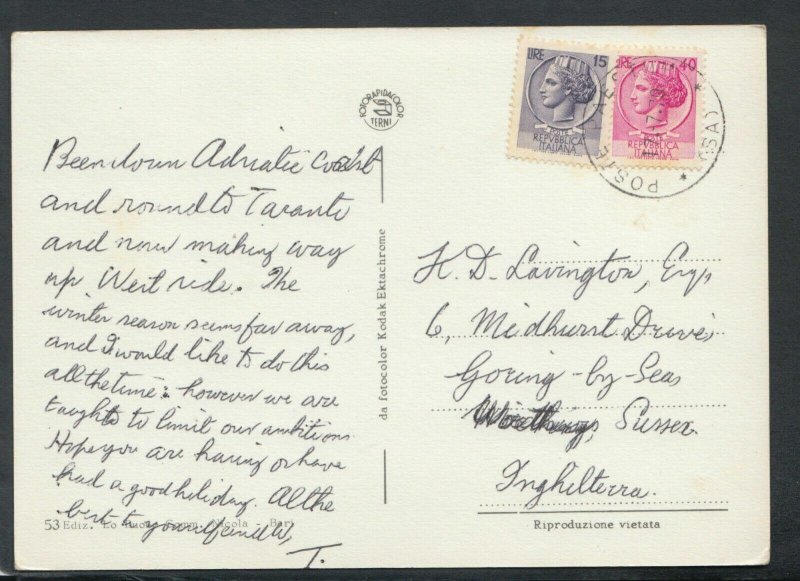 LIRE 15
POSTE
REPVBBLICA
ITALIANA
LIRE 40
REPVBBLICA
ITALIANA
POSTE
(SA)
FOTORAPIDACOLOR
TERNI
Been down Adriatic Coast
and round to Taranto
and now making way
up West side. The
winter season seems far away,
and I would like to do this
all the time: however we are
taught to limit our ambitions
Hope you are having or have
had a good holiday. All the
best to yourself and W,
T.
da fotocolor Kodak Ektachrome
H. D. Lavington, Esq,
6, Midhurst Drive,
Goring-by-Sea
Worthing, Sussex.
Inghilterra.
53 Ediz. Lo Bari
Riproduzione vietata